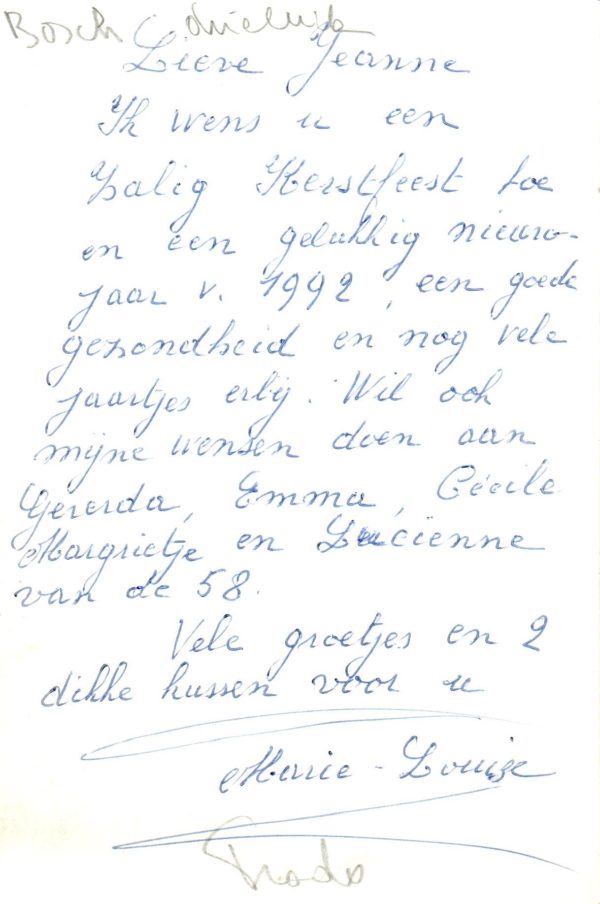 Bosch
Lieve Jeanne
Ik wens u een
Zalig Kerstfeest toe
en een gelukkig nieuw-
jaar v. 1992, een goede
gezondheid en nog vele
jaartjes erbij. Wil ook
mijne wensen doen aan
Gererda, Emma, Cécile
Margrietje en Lucienne
van de 58.
Vele groetjes en 2
dikke kussen voor u
Marie-Louise